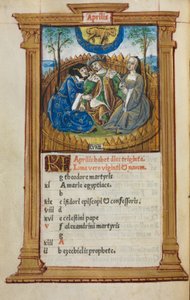 Aprilis
Aprilis habet dies triginta.
Luna vero viginti & novem.
g theodore martyris
xi A marie egyptiace
b
xix c
viii d isidori episcopi & confessoris.
xvi e celestini pape
v f alexandrini martyris
g
xiii A
ii b ezechielis prophete.